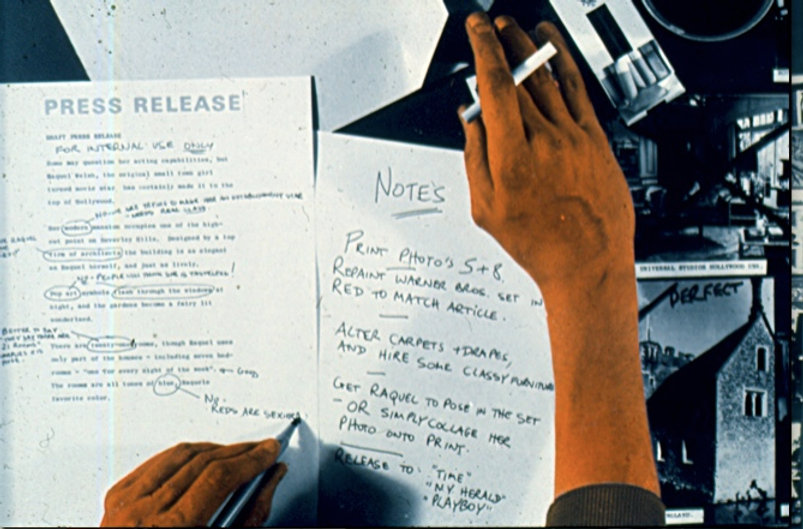 PRESS RELEASE
DRAFT PRESS RELEASE
FOR INTERNAL USE ONLY
Some may question her acting capabilities, but
Raquel Welsh, the original small town girl
turned movie star, has certainly made it to the
top of Hollywood.
NO-ONE
Her modern mansion occupies one of the high-
est point on Beverley Hills. Designed by a top
firm of architects the building is as elegant
as Raquel herself, and just as lively.
NO - PEOPLE WILL THINK SHE IS TASTELESS!
Pop art symbols flash through the windows at
night, and the gardens become a fairy lit
wonderland.
BETTER TO SAY
There are twenty-one rooms, though Raquel uses
only part of the houses - including seven bed-
rooms - "one for every night of the week".
The rooms are all tones of blue, Raquels
favorite color.
NO -
REDS ARE SEXIER!
NOTES
PRINT PHOTO'S 5+8.
REPAINT WARNER BROS. SET IN
RED TO MATCH ARTICLE.
ALTER CARPETS + DRAPES,
AND HIRE SOME CLASSY FURNITURE
GET RAQUEL TO POSE IN THE SET
- OR SIMPLY COLLAGE HER
PHOTO ONTO PRINT.
RELEASE TO: "TIME"
"NY HERALD"
"PLAYBOY"
UNIVERSAL STUDIOS HOLLYWOOD INC.
PERFECT